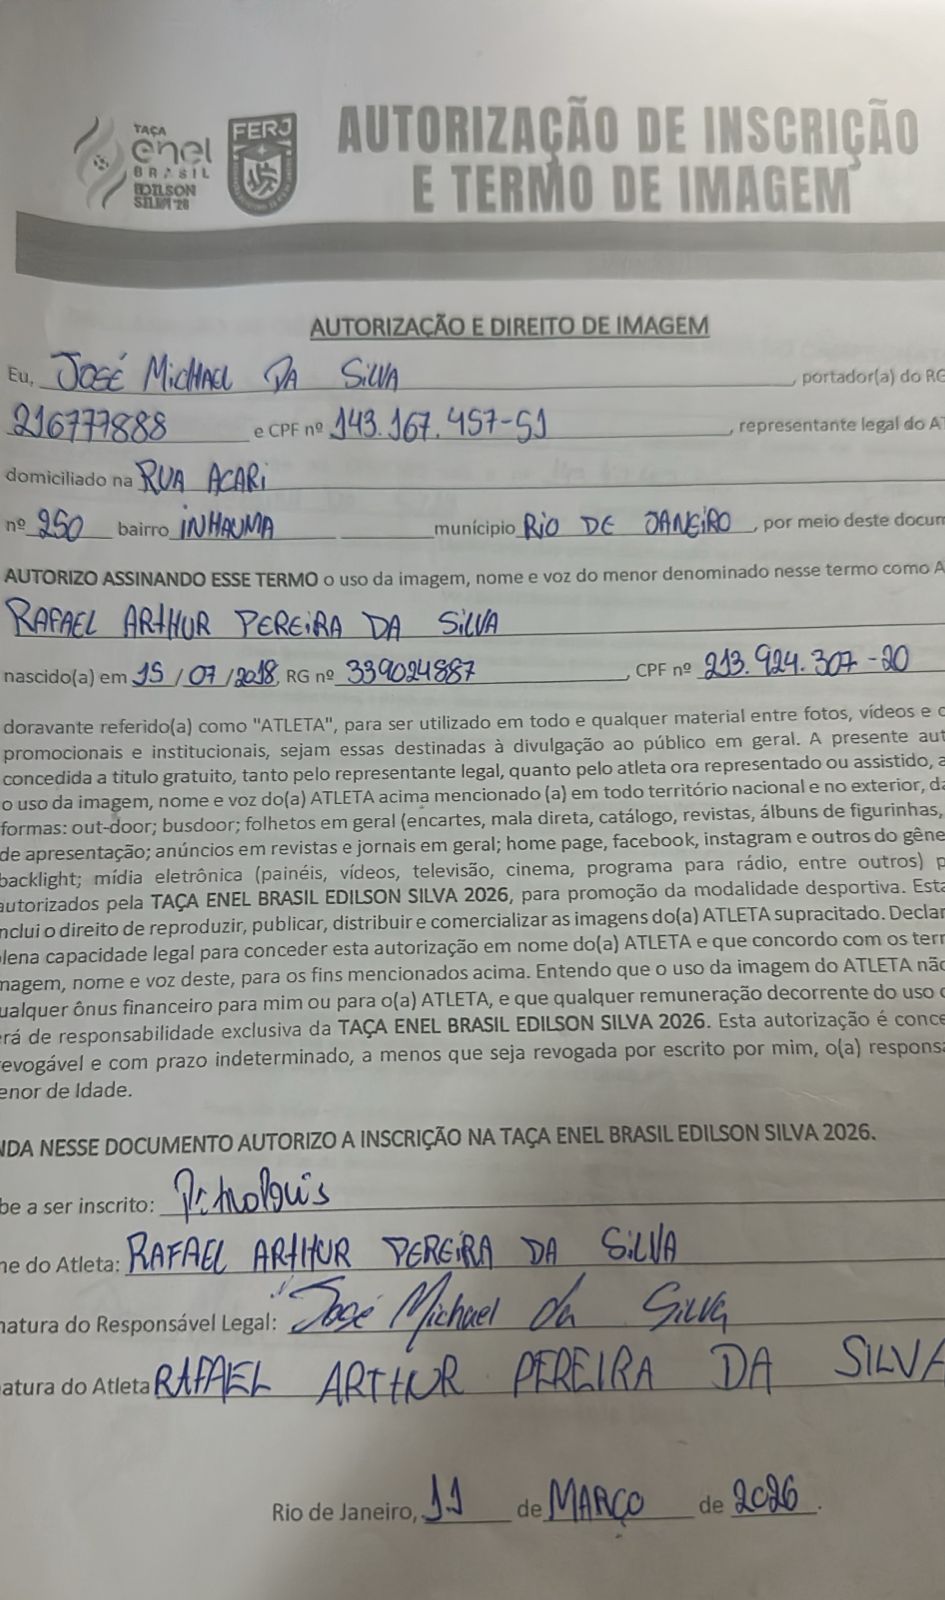 TAÇA
enel
BRASIL
EDILSON
SILVA'26
FERJ
AUTORIZAÇÃO DE INSCRIÇÃO
E TERMO DE IMAGEM
AUTORIZAÇÃO E DIREITO DE IMAGEM
Eu, JOSÉ MICHAEL DA SILVA, portador(a) do RG
216777888 e CPF nº 143.167.457-51, representante legal do A
domiciliado na RUA ACARI
nº 250 bairro INHAUMA munícipio RIO DE JANEIRO, por meio deste docum
AUTORIZO ASSINANDO ESSE TERMO o uso da imagem, nome e voz do menor denominado nesse termo como A
RAFAEL ARTHUR PEREIRA DA SILVA
nascido(a) em 15/07/2018, RG nº 339024887, CPF nº 213.924.307-20
doravante referido(a) como "ATLETA", para ser utilizado em todo e qualquer material entre fotos, vídeos e
promocionais e institucionais, sejam essas destinadas à divulgação ao público em geral. A presente aut
concedida a título gratuito, tanto pelo representante legal, quanto pelo atleta ora representado ou assistido, a
o uso da imagem, nome e voz do(a) ATLETA acima mencionado (a) em todo território nacional e no exterior, da
formas: out-door; busdoor; folhetos em geral (encartes, mala direta, catálogo, revistas, álbuns de figurinhas,
de apresentação; anúncios em revistas e jornais em geral; home page, facebook, instagram e outros do gêne
backlight; mídia eletrônica (painéis, vídeos, televisão, cinema, programa para rádio, entre outros) p
autorizados pela TAÇA ENEL BRASIL EDILSON SILVA 2026, para promoção da modalidade desportiva. Esta
nclui o direito de reproduzir, publicar, distribuir e comercializar as imagens do(a) ATLETA supracitado. Declar
lena capacidade legal para conceder esta autorização em nome do(a) ATLETA e que concordo com os term
magem, nome e voz deste, para os fins mencionados acima. Entendo que o uso da imagem do ATLETA não
ualquer ônus financeiro para mim ou para o(a) ATLETA, e que qualquer remuneração decorrente do uso
rá de responsabilidade exclusiva da TAÇA ENEL BRASIL EDILSON SILVA 2026. Esta autorização é conce
revogável e com prazo indeterminado, a menos que seja revogada por escrito por mim, o(a) responsa
enor de Idade.
NDA NESSE DOCUMENTO AUTORIZO A INSCRIÇÃO NA TAÇA ENEL BRASIL EDILSON SILVA 2026.
be a ser inscrito:
e do Atleta: RAFAEL ARTHUR PEREIRA DA SILVA
natura do Responsável Legal: José Michael da Silva
atura do Atleta RAFAEL ARTHUR PEREIRA DA SILVA
Rio de Janeiro, 11 de MARÇO de 2026.